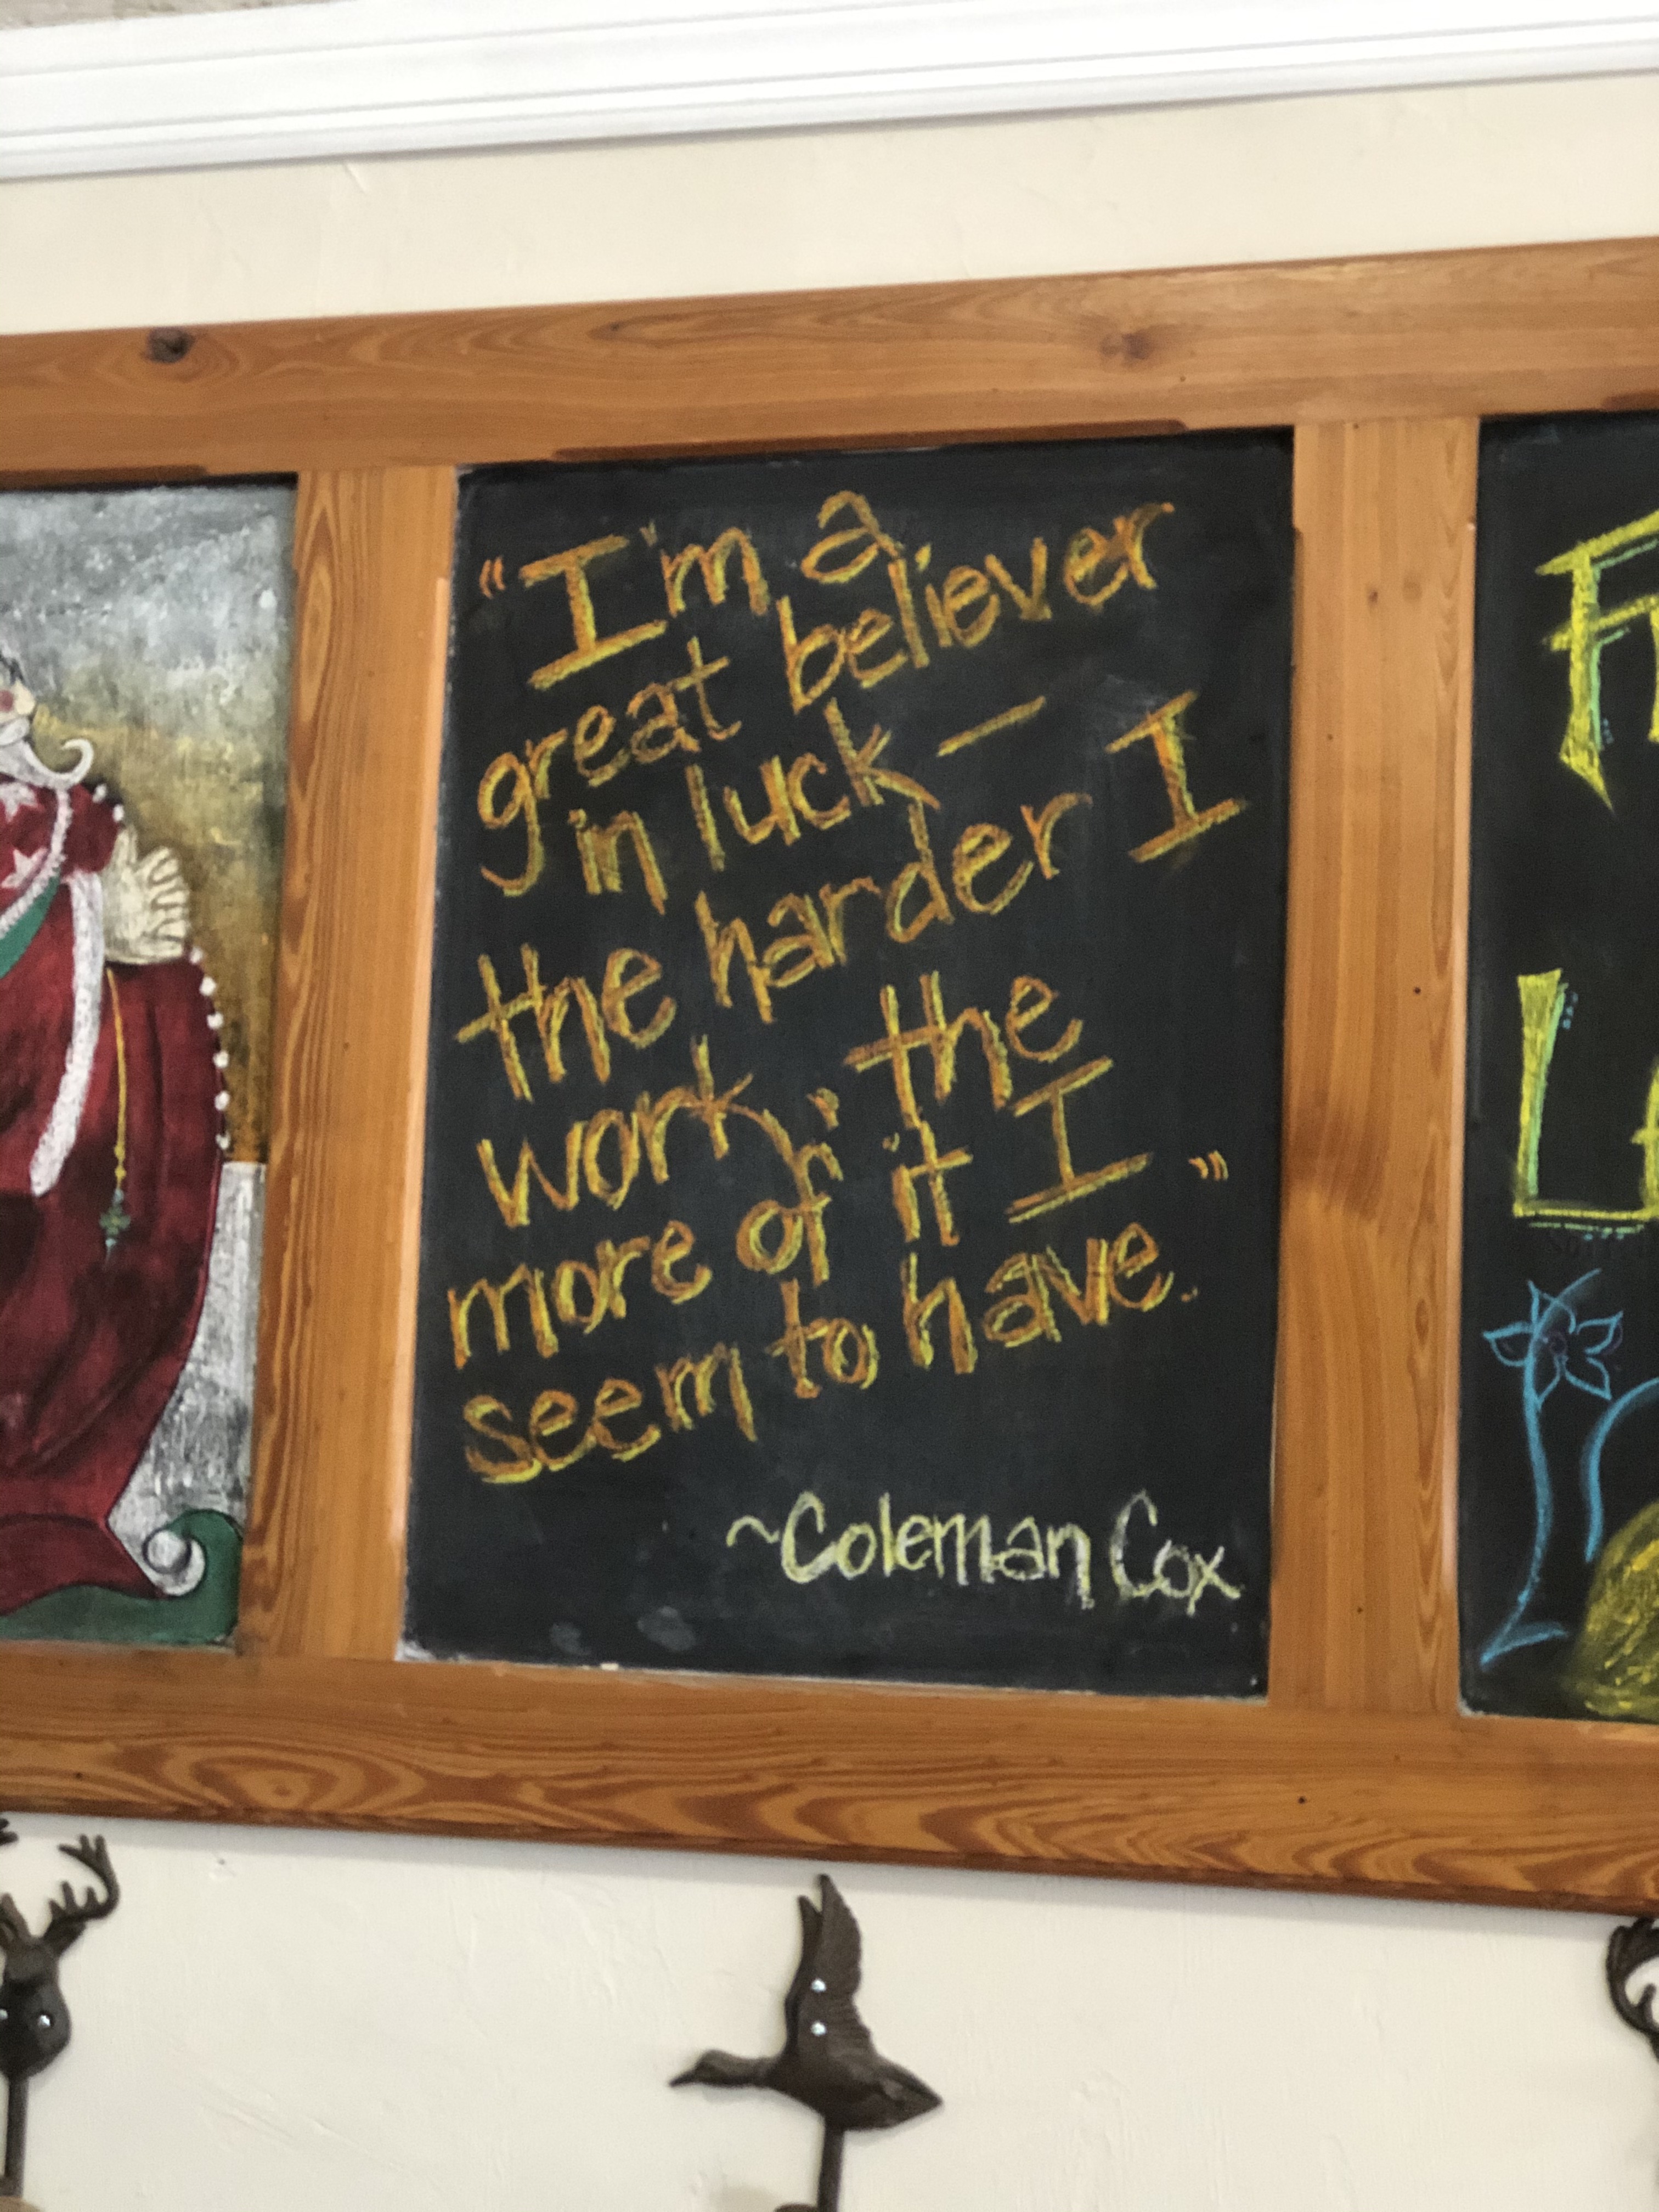 "I'm a
great believer
in luck —
the harder I
work, the
more of it I
seem to have."
~Coleman Cox